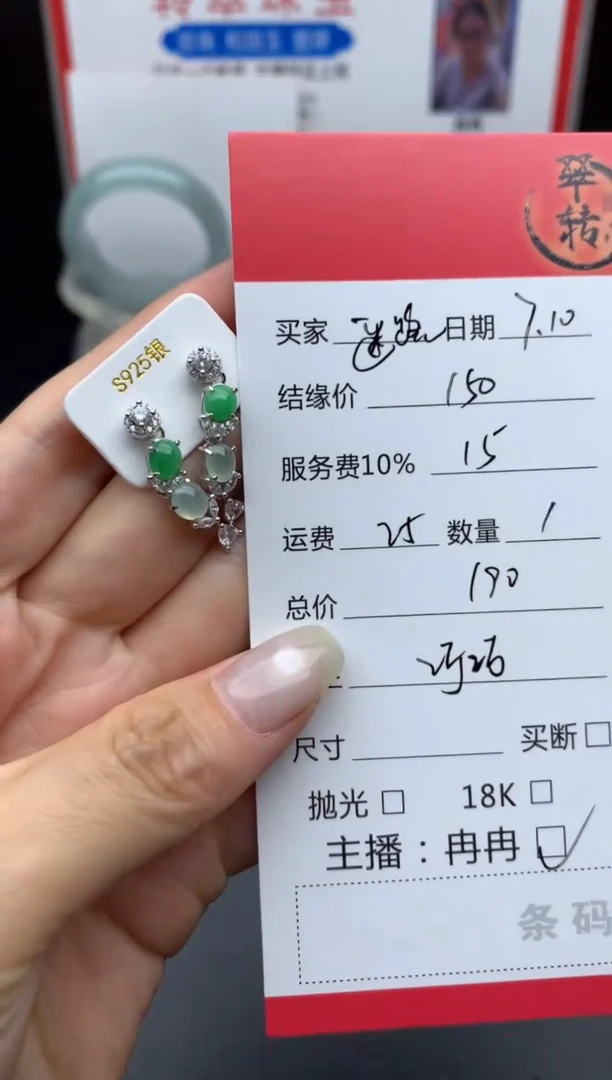 翡翠珠宝
S925银
翠
转
买家 迷路 日期 7.10
结缘价 150
服务费10% 15
运费 25 数量 1
总价 190
尺寸 买断
抛光 18K
主播：冉冉
条码